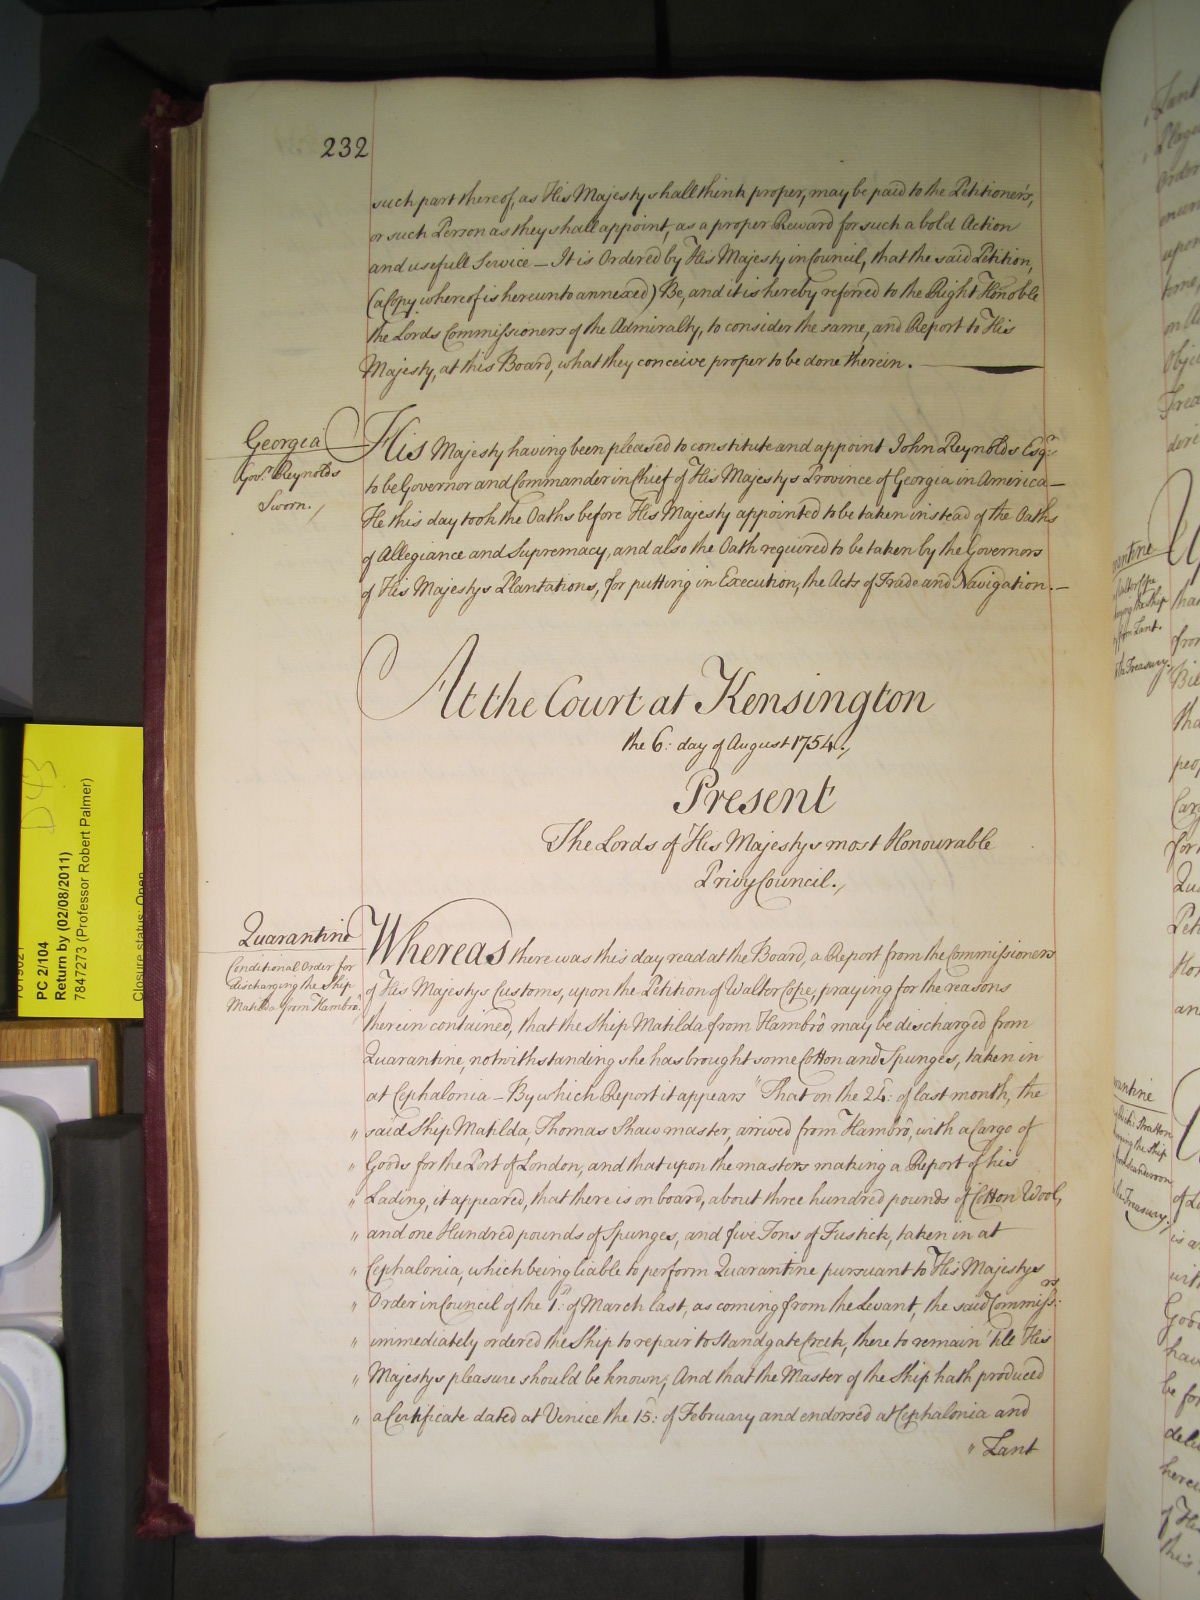 232
such part thereof, as His Majesty shall think proper, may be paid to the Petitioners,
or such Person as they shall appoint, as a proper Reward for such a bold Action
and usefull Service — It is Ordered by His Majesty in Council, that the said Petition,
(a Copy whereof is hereunto annexed) Be, and it is hereby referred to the Right Honoble
the Lords Commissioners of the Admiralty, to consider the same, and Report to His
Majesty, at this Board, what they conceive proper to be done therein.
Georgia
Govr. Reynolds
Sworn.
His Majesty having been pleased to constitute and appoint John Reynolds Esqr.
to be Governor and Commander in Chief of His Majestys Province of Georgia in America —
He this day took the Oaths before His Majesty appointed to be taken instead of the Oaths
of Allegiance and Supremacy, and also the Oath required to be taken by the Governors
of His Majestys Plantations, for putting in Execution, the Acts of Trade and Navigation. —
At the Court at Kensington
the 6: day of August 1754.,
Present
The Lords of His Majestys most Honourable
Privy Council.,
Quarantine
Conditional Order for
discharging the Ship
Matilda from Hambro'.
Whereas there was this day read at the Board, a Report from the Commissioners
of His Majestys Customs, upon the Petition of Walter Cope, praying for the reasons
therein contained, that the Ship Matilda from Hambrô may be discharged from
Quarantine, notwithstanding she has brought some Cotton and Spunges, taken in
at Cephalonia — By which Report it appears " That on the 24: of last month, the
" said Ship Matilda, Thomas Shaw master, arrived from Hambrô, with a Cargo of
" Goods for the Port of London, and that upon the masters making a Report of his
" Lading, it appeared, that there is on board, about three hundred pounds of Cotton Wool,
" and one Hundred pounds of Spunges, and five Tons of Fustick, taken in at
" Cephalonia, which being liable to perform Quarantine pursuant to His Majestys
" Order in Council of the 1st: of March last, as coming from the Levant, the said Commissrs:
" immediately ordered the Ship to repair to Standgate Creek, there to remain 'till His
" Majestys pleasure should be known; And that the Master of the Ship hath produced
" a Certificate dated at Venice the 15: of February and endorsed at Cephalonia and
" Zant
D43
PC 2/104
Return by (02/08/2011)
7847273 (Professor Robert Palmer)
Closure status: Open